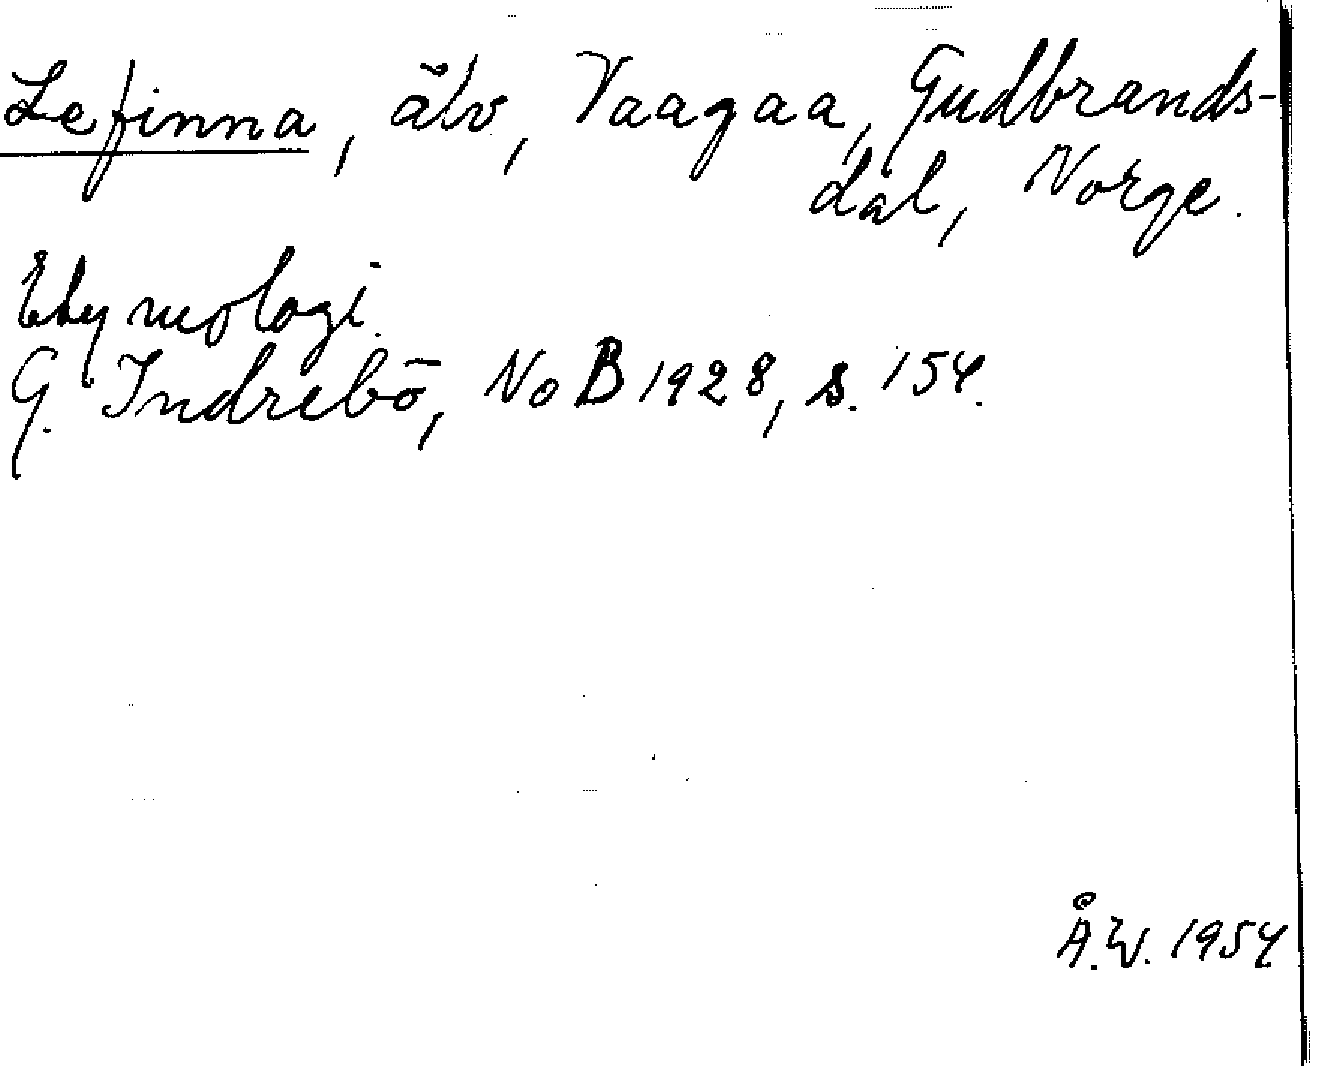 Lefinna, älv, Vaagaa, Gudbrands-
dal, Norge.
Etymologi.
G. Indrebö, NoB 1928, s. 154.
Å.W. 1954